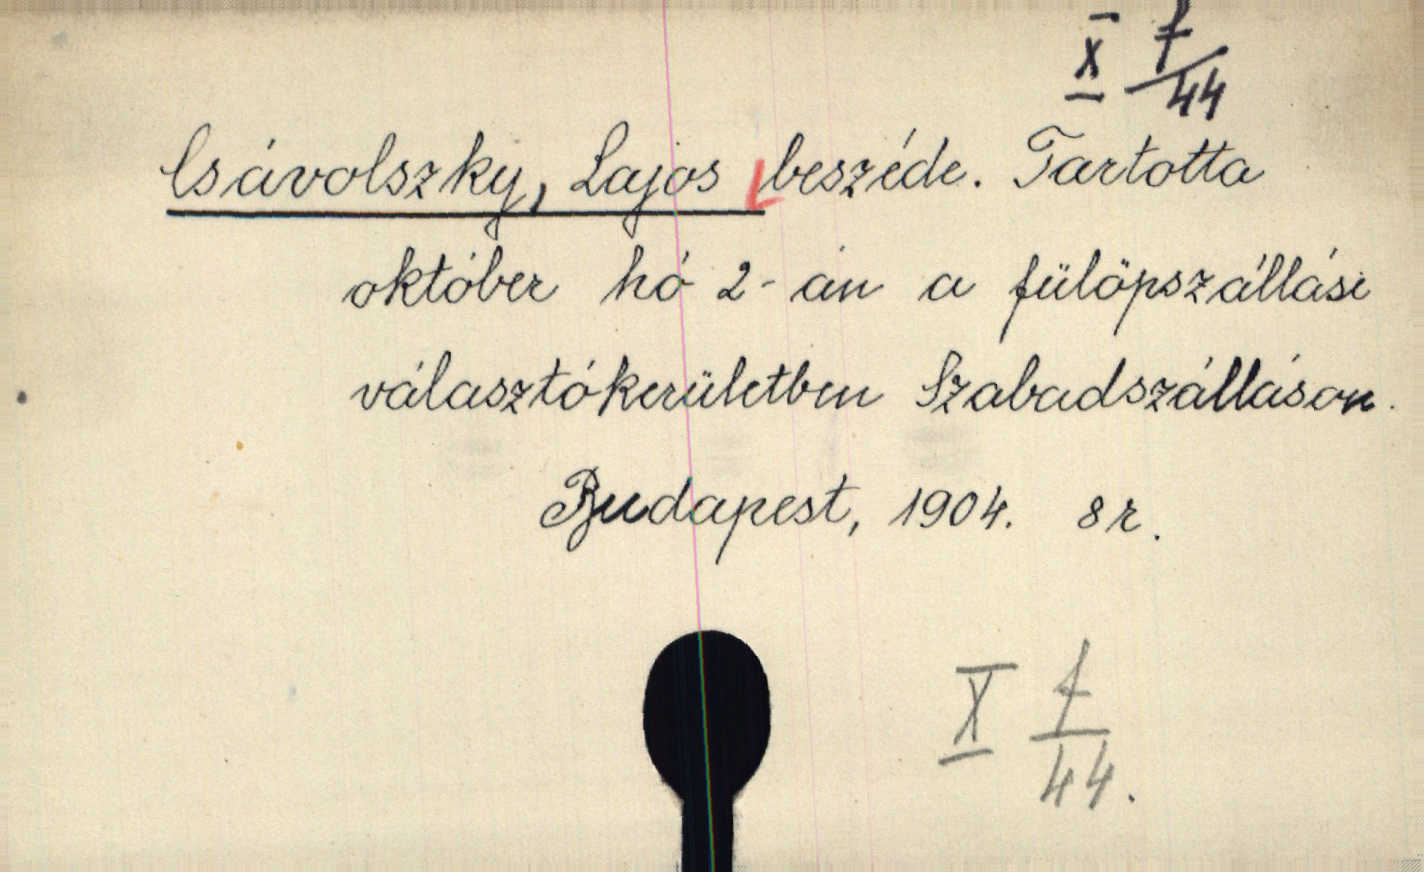 X f/44
Csávolszky, Lajos beszéde. Tartotta
október hó 2-án a fülöpszállási
választókerületben Szabadszálláson.
Budapest, 1904. 8r.
X f/44.